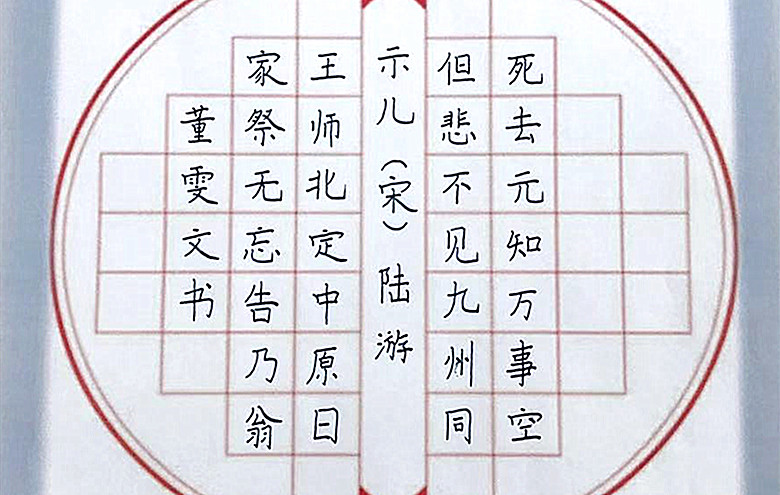 死去元知万事空
但悲不见九州同
示儿（宋）陆游
王师北定中原日
家祭无忘告乃翁
董雯文书